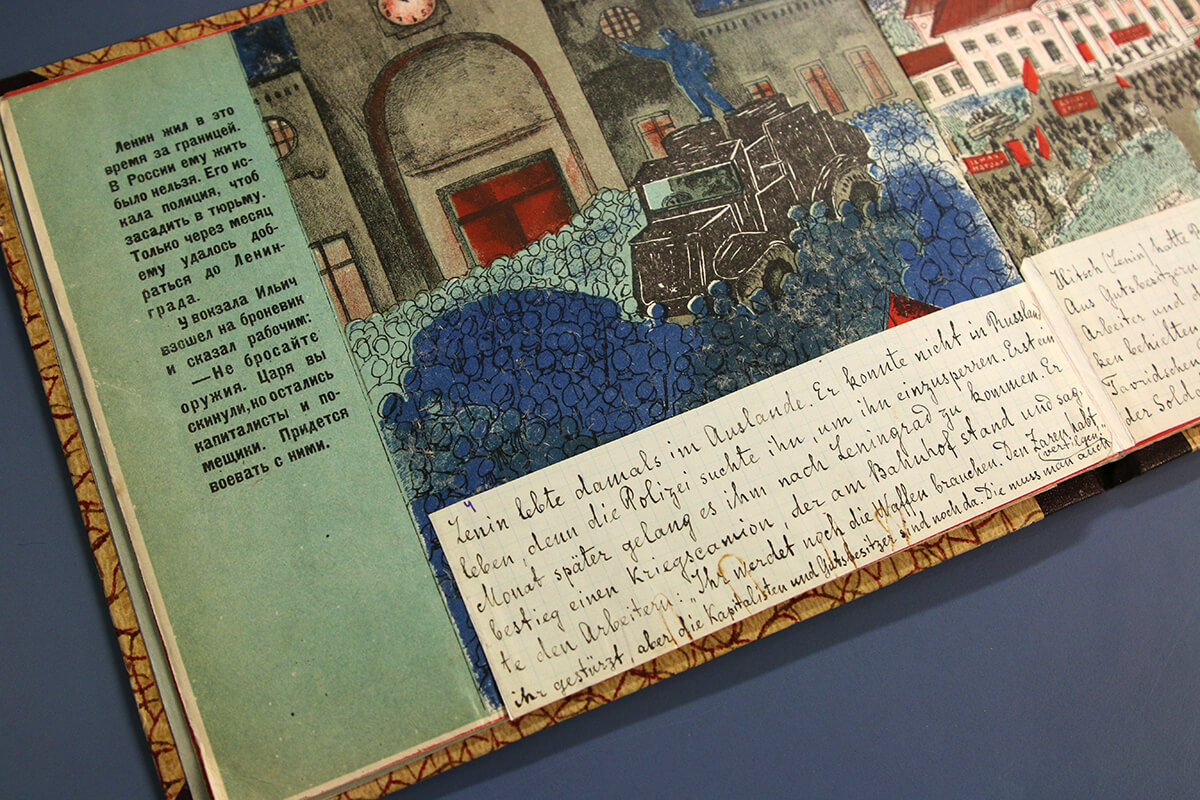 Ленин жил в это
время за границей.
В России ему жить
было нельзя. Его ис-
кала полиция, чтоб
засадить в тюрьму.
Только через месяц
ему удалось доб-
раться до Ленин-
града.
У вокзала Ильич
взошел на броневик
и сказал рабочим:
—Не бросайте
оружия. Царя вы
скинули, но остались
капиталисты и по-
мещики. Придется
воевать с ними.
4
Lenin lebte damals im Auslande. Er konnte nicht in Russland
leben, denn die Polizei suchte ihn, um ihn einzusperren. Erst ein
Monat später gelang es ihm nach Leningrad zu kommen. Er
bestieg einen Kriegscamion, der am Bahnhof stand und sag-
te den Arbeitern: "Ihr werdet noch die Waffen brauchen. Den Zaren habt
ihr gestürzt, aber die Kapitalisten und Gutsbesitzer sind noch da. Die muss man auch
vertilgen."
Iljitsch (Lenin) hatte
Aus Gutsbesitzern
Arbeiter und
ken behielten
Tavridschen
der Sold